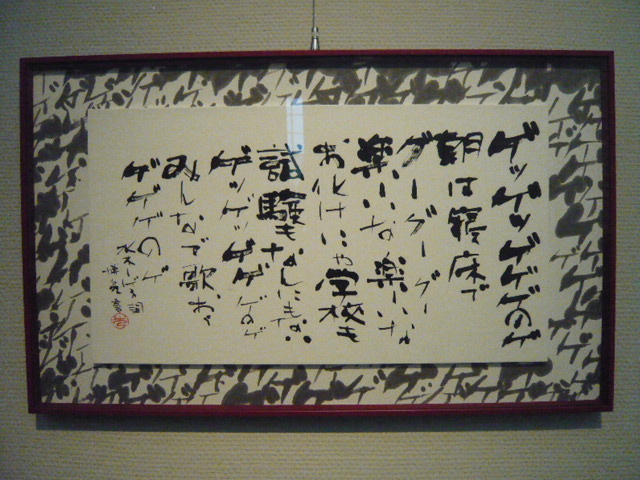 ゲッゲッゲゲゲのゲ
朝は寝床で
グーグーグー
楽しいな楽しいな
お化けにゃ学校も
試験もなんにもない
ゲッゲッゲゲゲのゲ
みんなで歌おう
ゲゲゲのゲ
水木しげる 詞